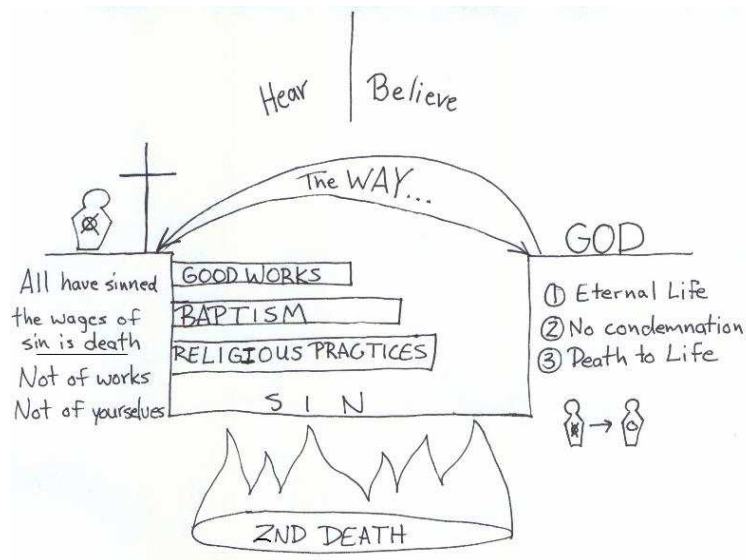 Hear
Believe
The WAY...
GOD
All have sinned
the wages of
sin is death
Not of works
Not of yourselves
GOOD WORKS
BAPTISM
RELIGIOUS PRACTICES
S I N
① Eternal Life
② No condemnation
③ Death to Life
2ND DEATH